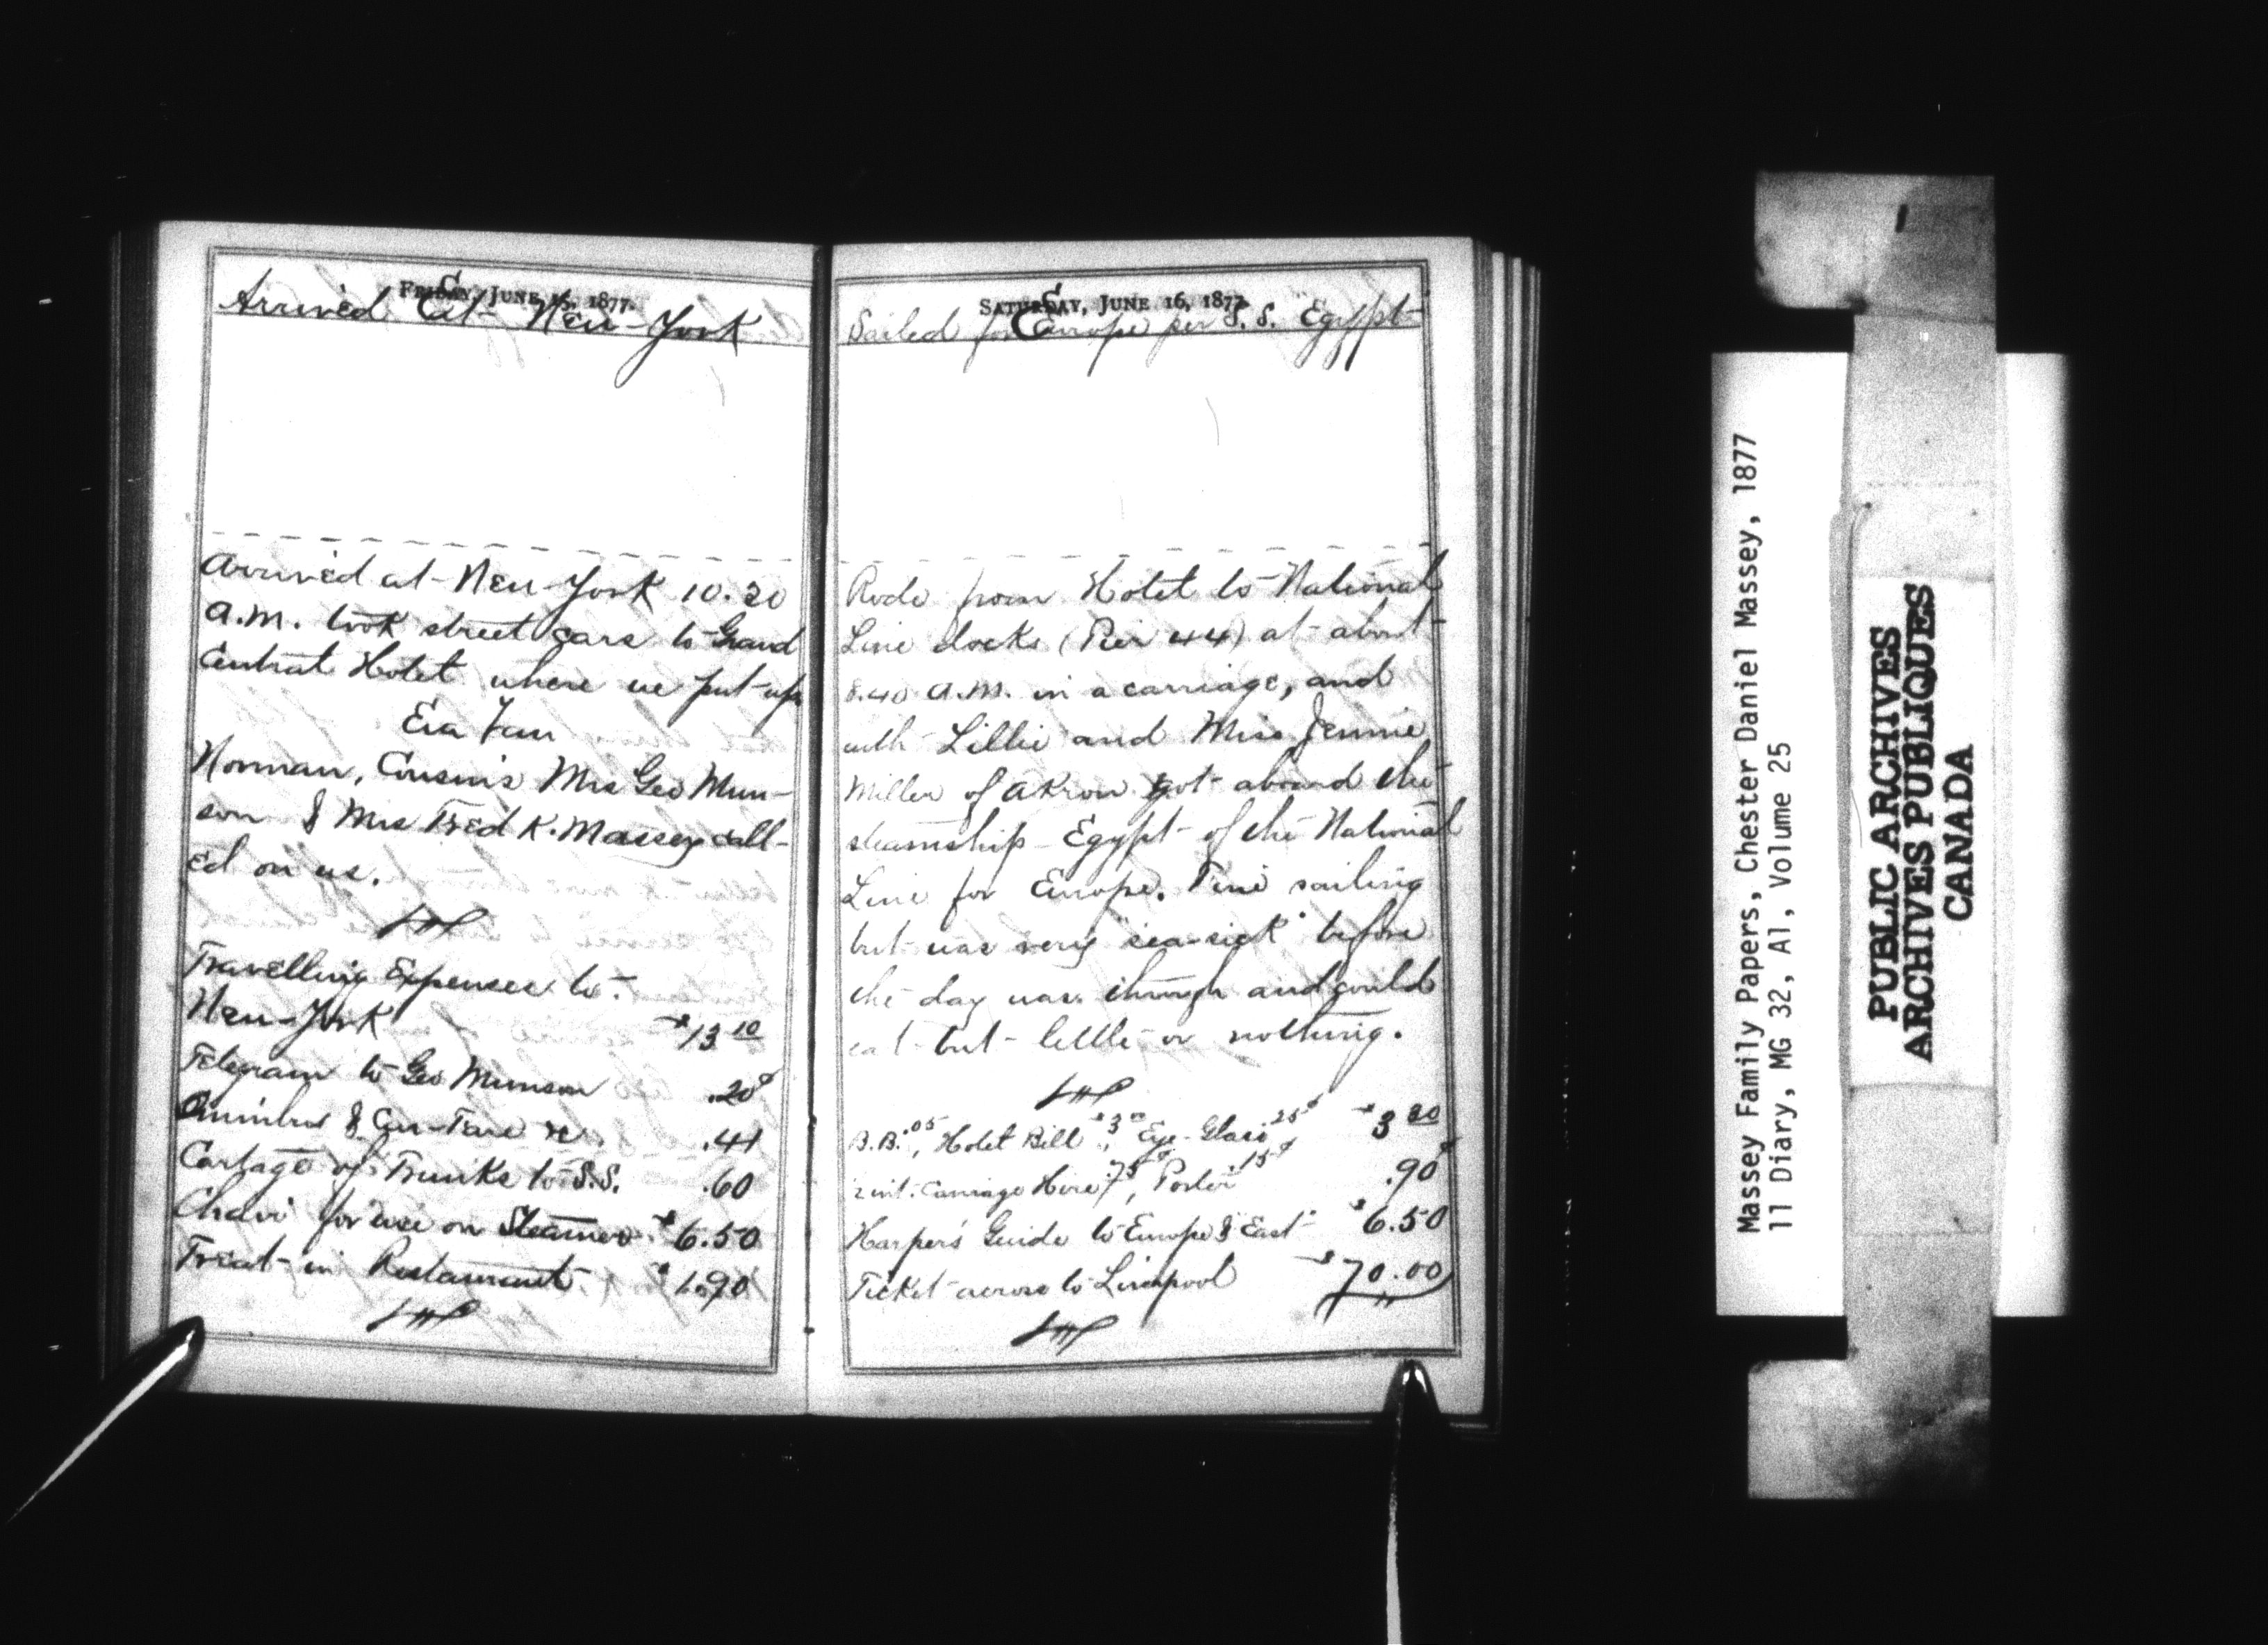 FRIDAY, JUNE 15, 1877.
C
Arrived at New-York
Arrived at New-York 10.20
A.M. took street cars to Grand
Central Hotel where we put up
Norman, Cousins Mrs Geo Mun-
son & Mrs Fred K. Massey call-
ed on us.
Travelling Expenses to
New-York $13 10
Telegram to Geo Munson .20¢
Omnibus & Car-Fare &c. .41
Cartage of Trunks to S.S. .60
Chair for use on Steamer $6.50
Treat in Restaurant $1.90
SATURDAY, JUNE 16, 1877.
C
Sailed for Europe per S.S. Egypt
Rode from Hotel to National
Line docks (Pier 44) at about
8.40 A.M. in a carriage, and
with Lillie and Miss Jennie
Miller of Akron got aboard the
steamship Egypt of the National
Line for Europe. Fine sailing
but was very "sea-sick" before
the day was through and could
eat but little or nothing.
B.B. .05, Hotel Bill $3.00, Eye-Glass 25¢ $3 30
Carriage Hire 75¢, Porter 15¢ .90¢
Harper's Guide to Europe & East $6.50
Ticket across to Liverpool $70.00
Massey Family Papers, Chester Daniel Massey, 1877
11 Diary, MG 32, A1, Volume 25
PUBLIC ARCHIVES
ARCHIVES PUBLIQUES
CANADA